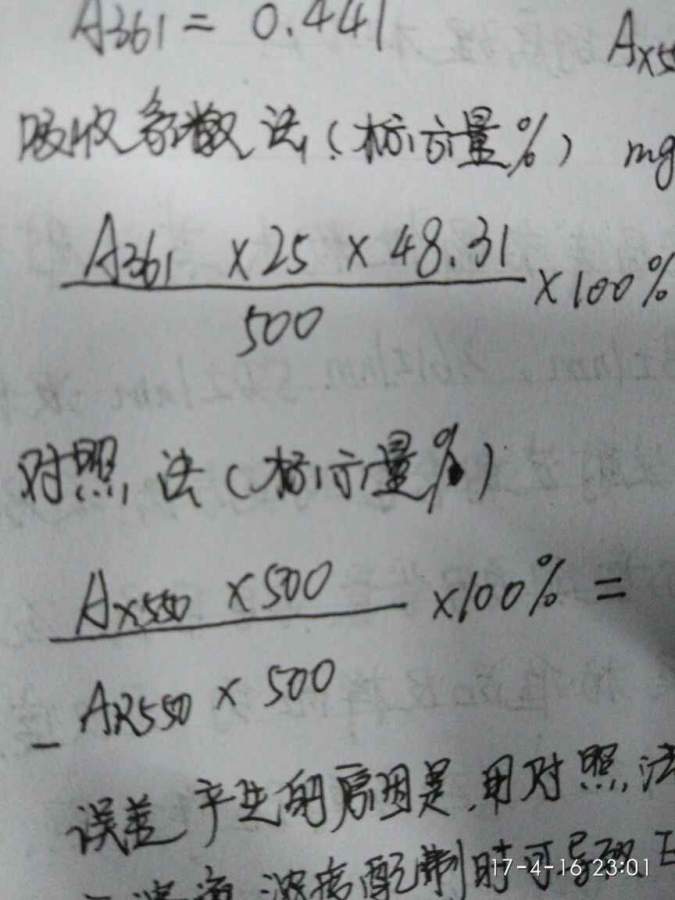 A361 = 0.441
Ax55
吸收系数法(标示量%) mg
A361 ×25 ×48.31
500
×100%
对照法(标示量%)
Ax550 ×500
AR550 × 500
×100% =
误差产生的原因是,用对照法
液配制时可导致
17-4-16 23:01